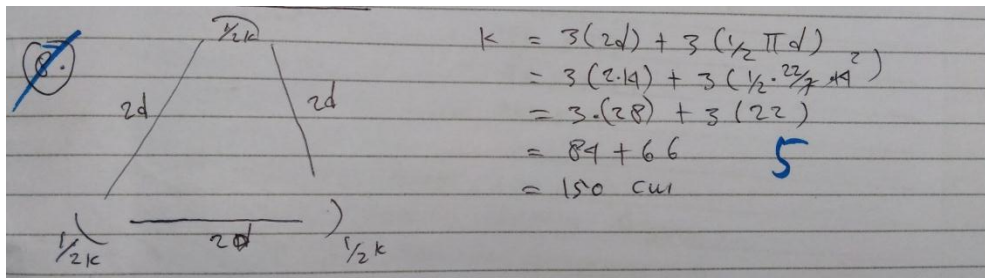 8.
1/2k
2d
2d
1/2k
2d
1/2k
K = 3(2d) + 3(1/2 πd)
= 3(2·14) + 3(1/2 · 22/7 · 14²)
= 3·(28) + 3(22)
= 84 + 66
= 150 cm
5